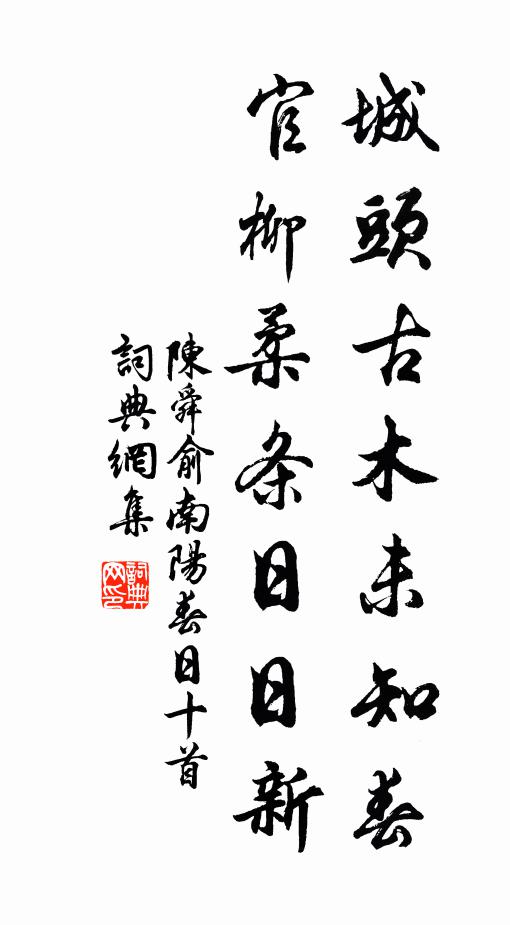 城頭古木未知春
官柳柔条日日新
陳舜俞南陽春日十首
詞典網集
詞典網印